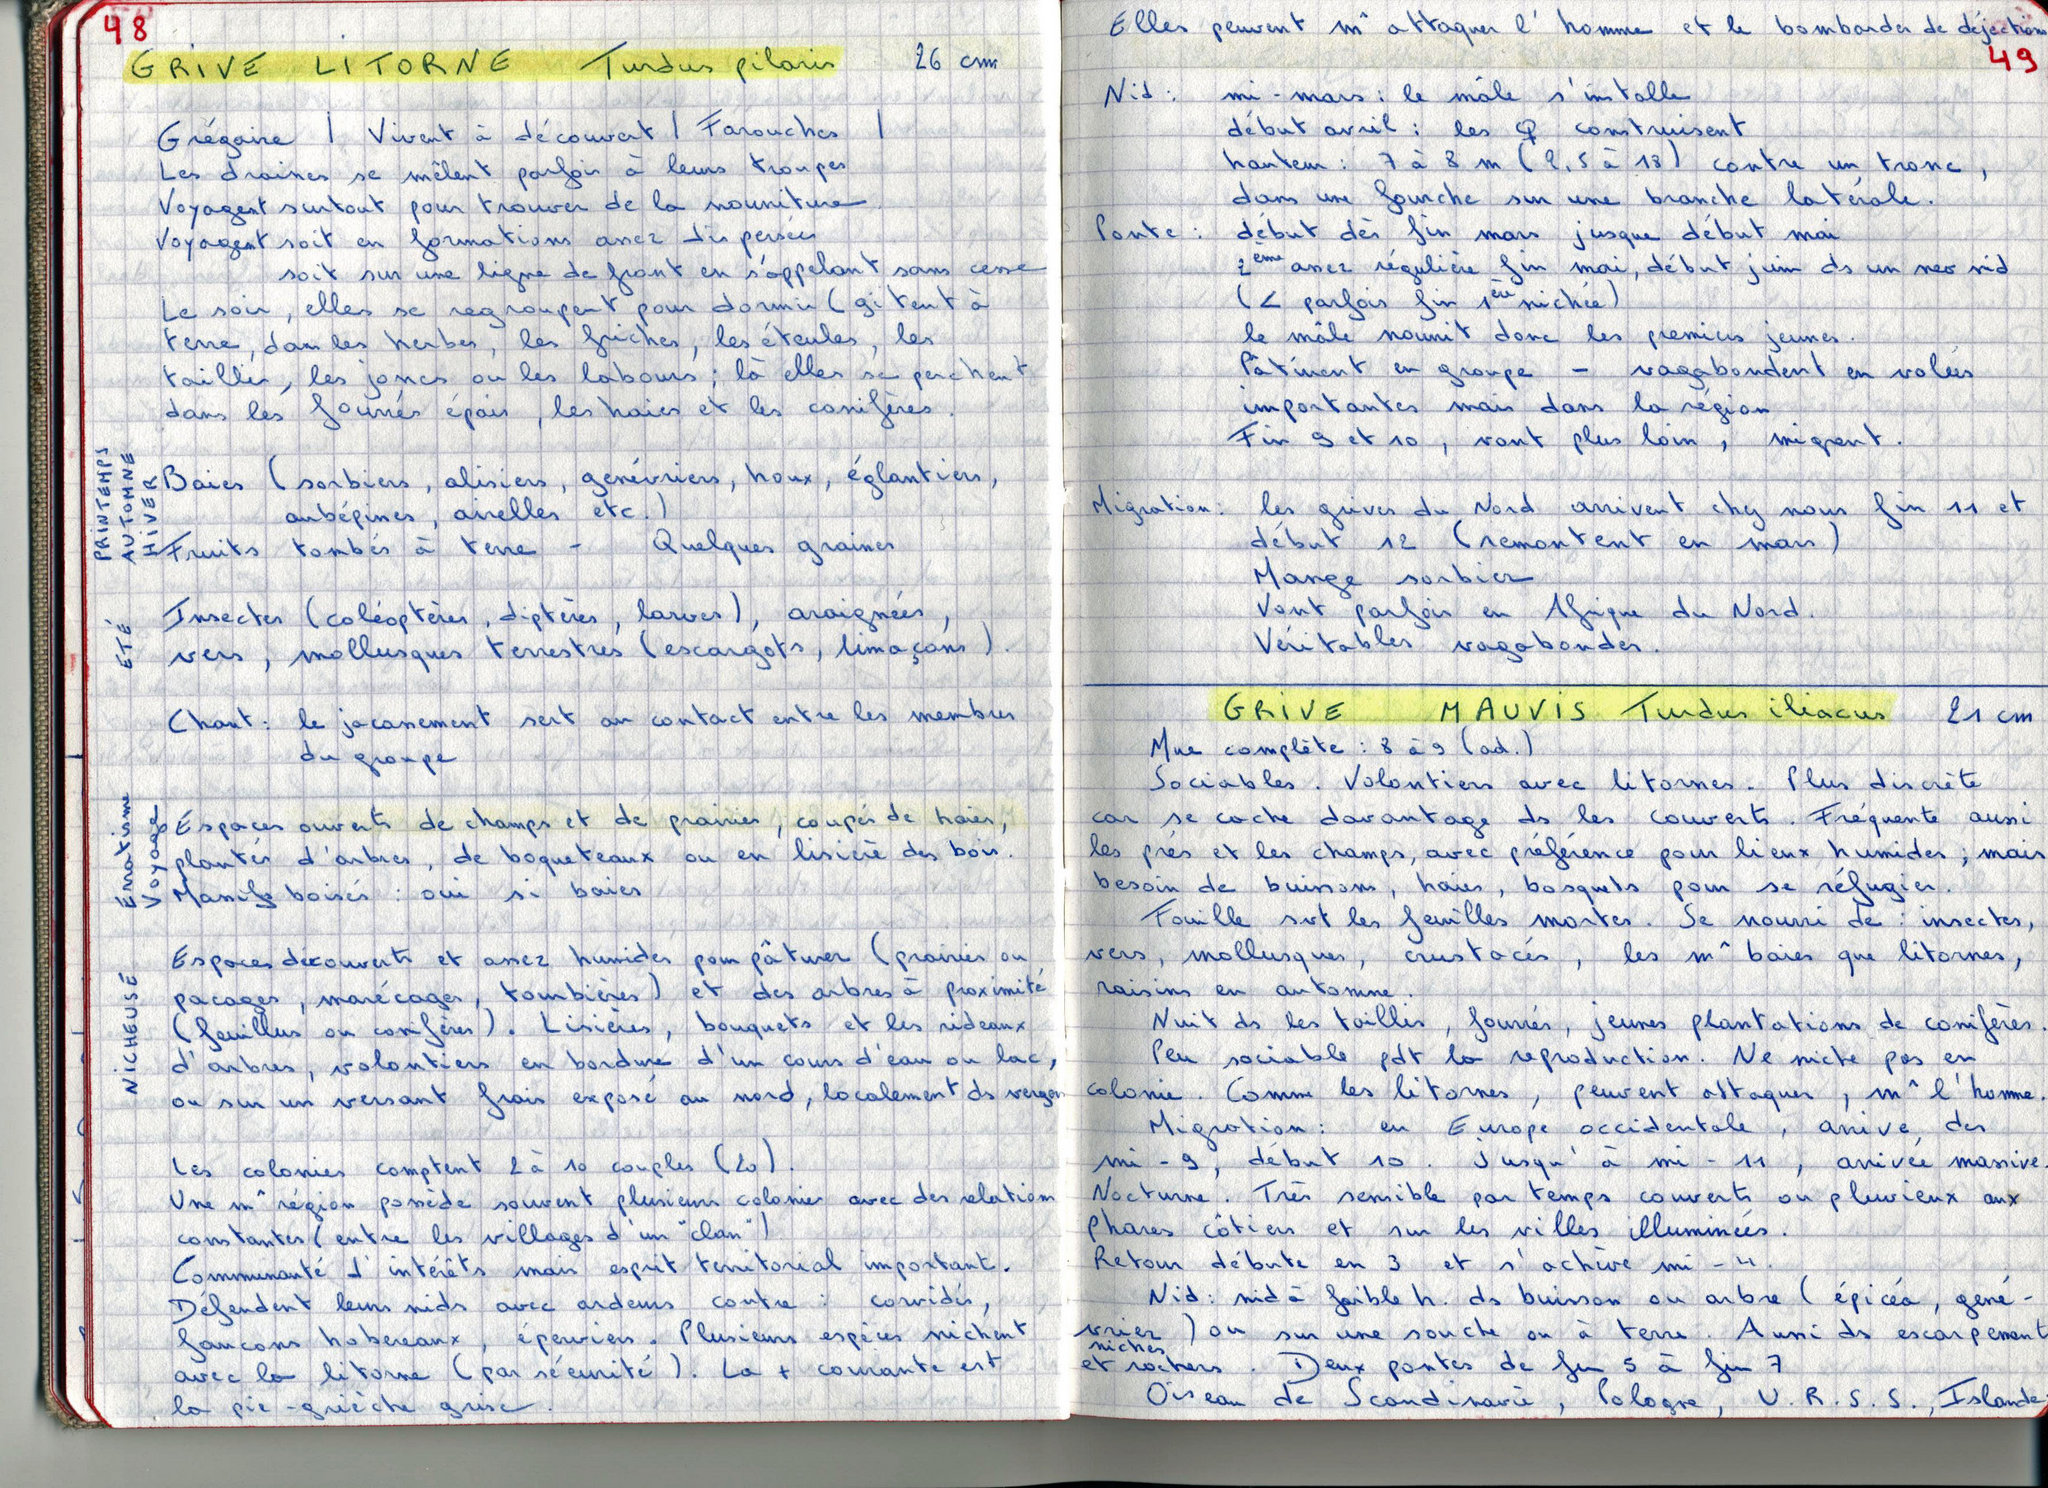 48
GRIVE LITORNE Turdus pilaris 26 cm
Grégaire | Vivent à découvert | Farouches |
Les draines se mêlent parfois à leurs troupes
Voyagent surtout pour trouver de la nourriture.
Voyagent soit en formations assez dispersées
soit sur une ligne de front en s'appelant sans cesse
Le soir, elles se regroupent pour dormir (gitent à
terre, dans les herbes, les friches, les éteules, les
taillis, les joncs ou les labours ; là elles se perchent
dans les fourrés épais, les haies et les conifères.
PRINTEMPS
AUTOMNE
HIVER
Baies (sorbiers, alisiers, genévriers, houx, églantiers,
aubépines, airelles etc.)
Fruits tombés à terre - Quelques graines
ETÉ
Insectes (coléoptères, diptères, larves), araignées,
vers, mollusques terrestres (escargots, limaçons).
Chant : le jacassement sert au contact entre les membres
du groupe
Erratisme
Voyage
Espaces ouverts de champs et de prairies, coupés de haies,
plantés d'arbres, de boqueteaux ou en lisière des bois.
Massifs boisés : oui si baies
NICHEUSE
Espaces découverts et assez humides pour pâturer (prairies ou
pacages, marécages, tourbières) et des arbres à proximité
(feuillus ou conifères). Lisières, bouquets et les rideaux
d'arbres, volontiers en bordure d'un cours d'eau ou lac,
ou sur un versant frais exposé au nord, localement ds vergers
Les colonies comptent 2 à 10 couples (20).
Une m^ région possède souvent plusieurs colonies avec des relations
constantes (entre les villages d'un "clan")
Communauté d'intérêts mais esprit territorial important.
Défendent leurs nids avec ardeurs contre : corvidés,
faucons hobereaux, éperviers. Plusieurs espèces nichent
avec la litorne (par sécurité). La + courante est
la pie-grièche grise.
Elles peuvent m^ attaquer l'homme et le bombarder de déjections
49
Nid : mi-mars : le mâle s'installe
début avril : les ♀ construisent
hauteur : 7 à 8 m (2,5 à 18) contre un tronc,
dans une fourche sur une branche latérale.
Ponte : début dès fin mars jusque début mai
2ème assez régulière fin mai, début juin ds un nev nid
(< parfois fin 1ère nichée)
le mâle nourrit donc les premiers jeunes.
Pâturent en groupe - vagabondent en volées
importantes mais dans la région
Fin 9 et 10, vont plus loin, migrent.
Migration : les grives du Nord arrivent chez nous fin 11 et
début 12 (remontent en mars)
Mange sorbier
Vont parfois en Afrique du Nord.
Véritables vagabondes.
GRIVE MAUVIS Turdus iliacus 21 cm
Mue complète : 8 à 9 (ad.)
Sociables. Volontiers avec litornes. Plus discrète
car se cache davantage ds les couverts. Fréquente aussi
les prés et les champs, avec préférence pour lieux humides ; mais
besoin de buissons, haies, bosquets pour se réfugier.
Fouille srt les feuilles mortes. Se nourri de : insectes,
vers, mollusques, crustacés, les m^ baies que litornes,
raisins en automne.
Nuit ds les taillis, fourrés, jeunes plantations de conifères.
Peu sociable pdt la reproduction. Ne niche pas en
colonie. Comme les litornes, peuvent attaquer, m^ l'homme.
Migration : en Europe occidentale, arrive des
mi-9, début 10. Jusqu'à mi-11, arrivée massive.
Nocturne. Très sensible par temps couverts ou pluvieux aux
phares côtiers et sur les villes illuminées.
Retour débute en 3 et s'achève mi-4.
Nid : nid à faible h. ds buisson ou arbre (épicéa, gené-
vrier) ou sur une souche ou à terre. Aussi ds escarpement
niches
et rochers. Deux pontes de fin 5 à fin 7
Oiseau de Scandinavie, Pologne, U.R.S.S., Islande.